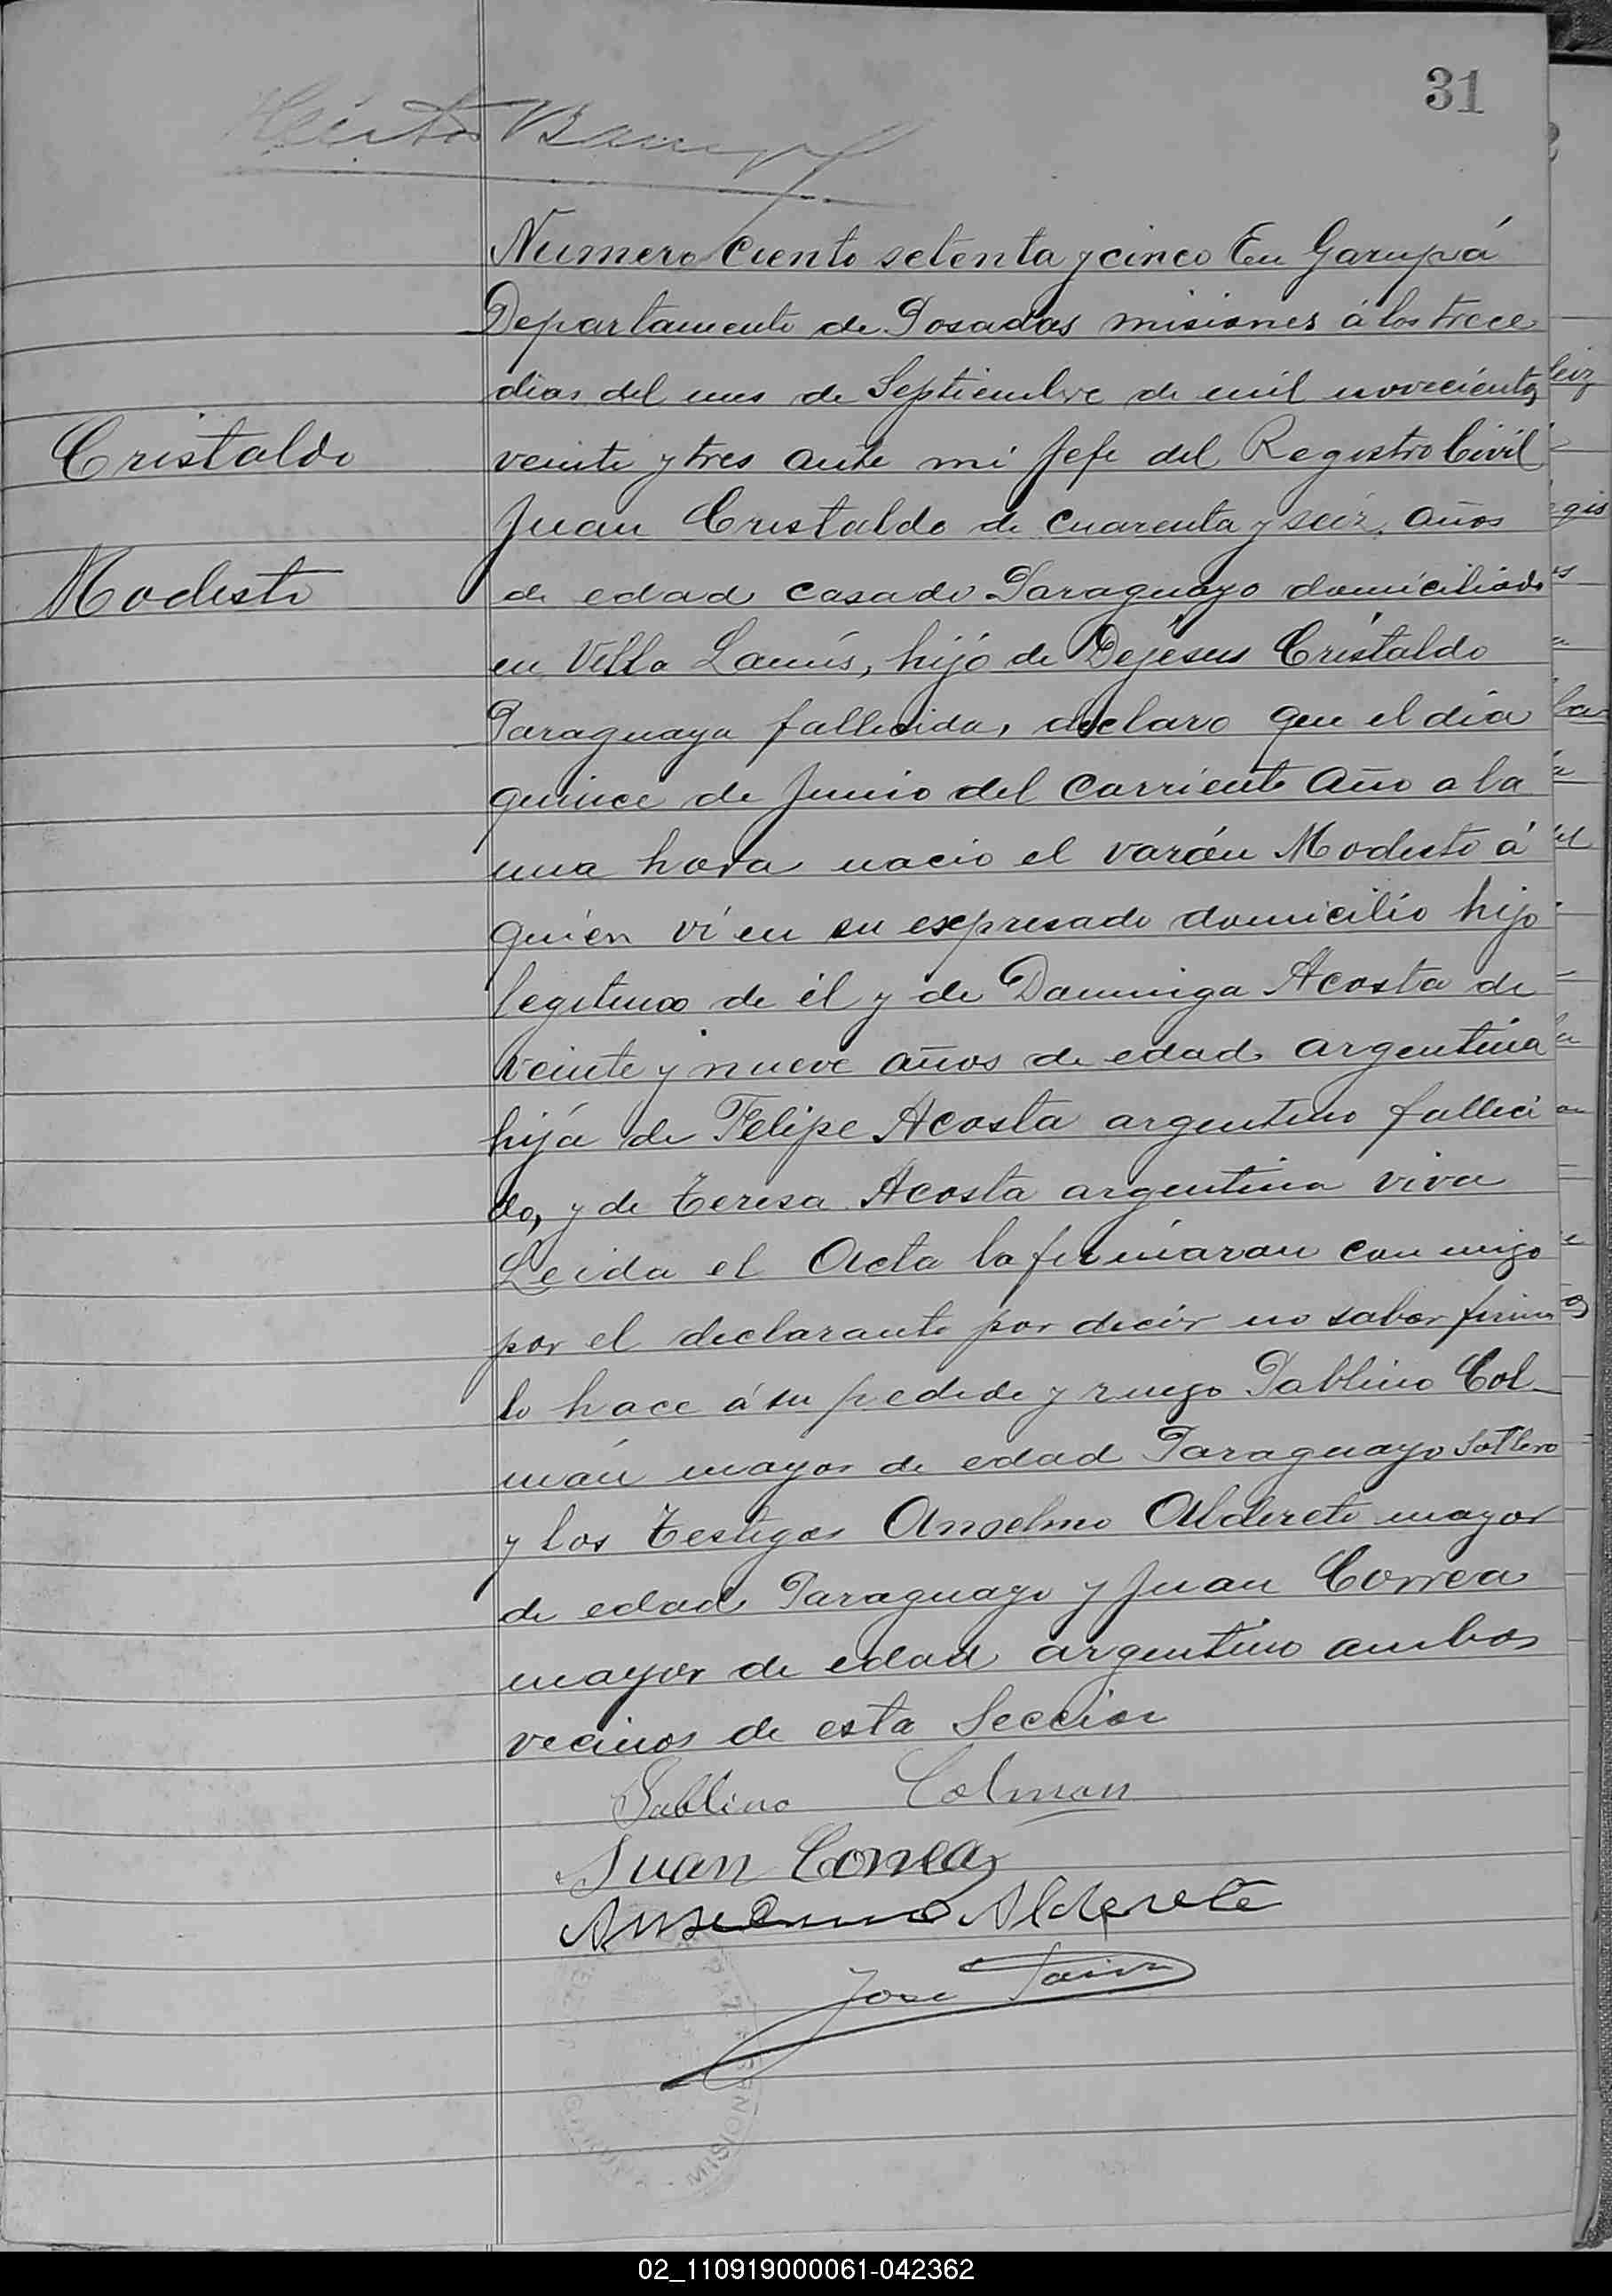 31
Numero Ciento setenta y cinco En Garupá
Departamento de Posadas misiones á los trece
dias del mes de Septiembre de mil novecientos
Cristaldo
veinte y tres ante mi Jefe del Registro Civil
Juan Cristaldo de cuarenta y seiz años
Modesto
de edad casado Paraguayo domiciliado
en Villa Lanús, hijo de Dejésus Cristaldo
Paraguaya fallecida, declaro que el día
quince de Junio del Corriente Año a la
una hora nacio el varón Modesto á
quién ví en su expresado domicilio hijo
legitimo de él y de Dominga Acosta de
veinte y nueve años de edad argentina
hija de Felipe Acosta argentino falleci
do, y de Teresa Acosta argentina viva
Leida el Acta la firmaran con migo
por el declarante por decir no saber firmar
lo hace á su pedido y ruego Pablino Col-
mán mayor de edad Paraguayo Soltero
y los Testigos Anselmo Alderete mayor
de edad Paraguayo y Juan Correa
mayor de edad argentino ambos
vecinos de esta Seccion
Pablino Colman
Juan Correa
Anselmo Alderete
Jose Paiva
MISIONES
02_110919000061-042362